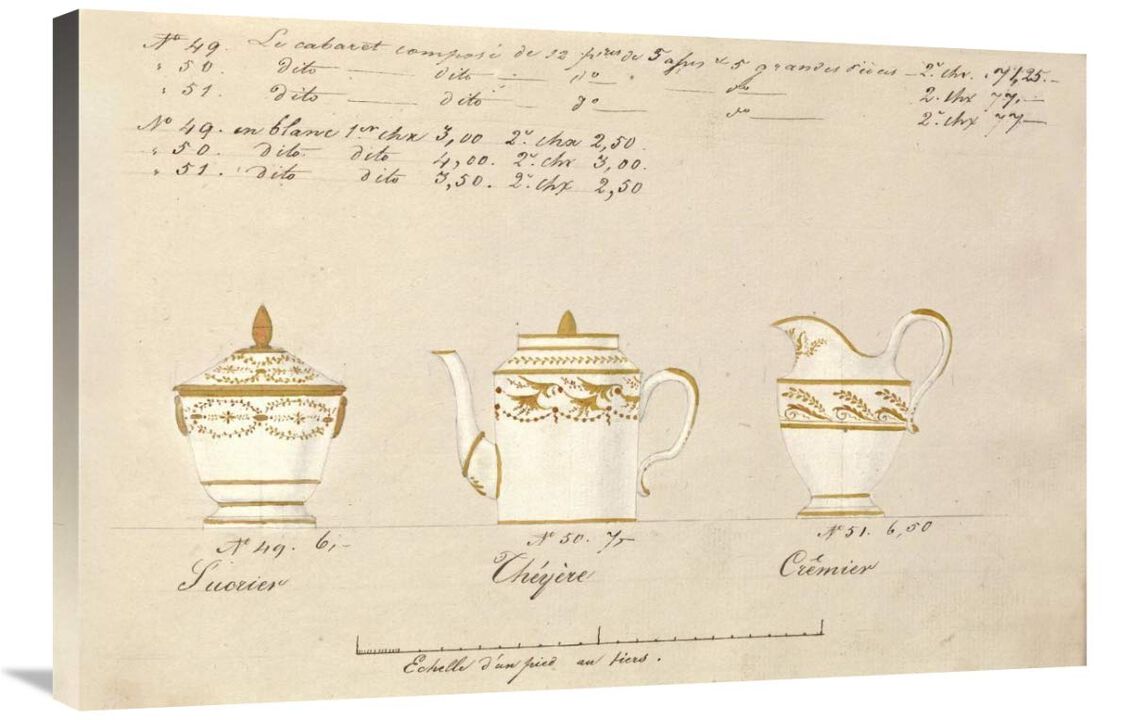 No 49. Le cabaret composé de 12 pieces de 5 afs & 5 grandes pièces — 2e chx. 71,25.—
" 50 dito — dito — do — do — 2. chx 77,—
" 51. dito — dito — do — do — 2e chx 77—
No 49. en blanc 1er chx 3,00 2e chx 2,50.
" 50. dito dito 4,00. 2e chx 3,00.
" 51. dito dito 3,50. 2e chx 2,50
No 49. 6,-
No 50. 7,-
No 51. 6,50
Sucrier
Théyère
Crêmier
Echelle d'un pied au tiers.